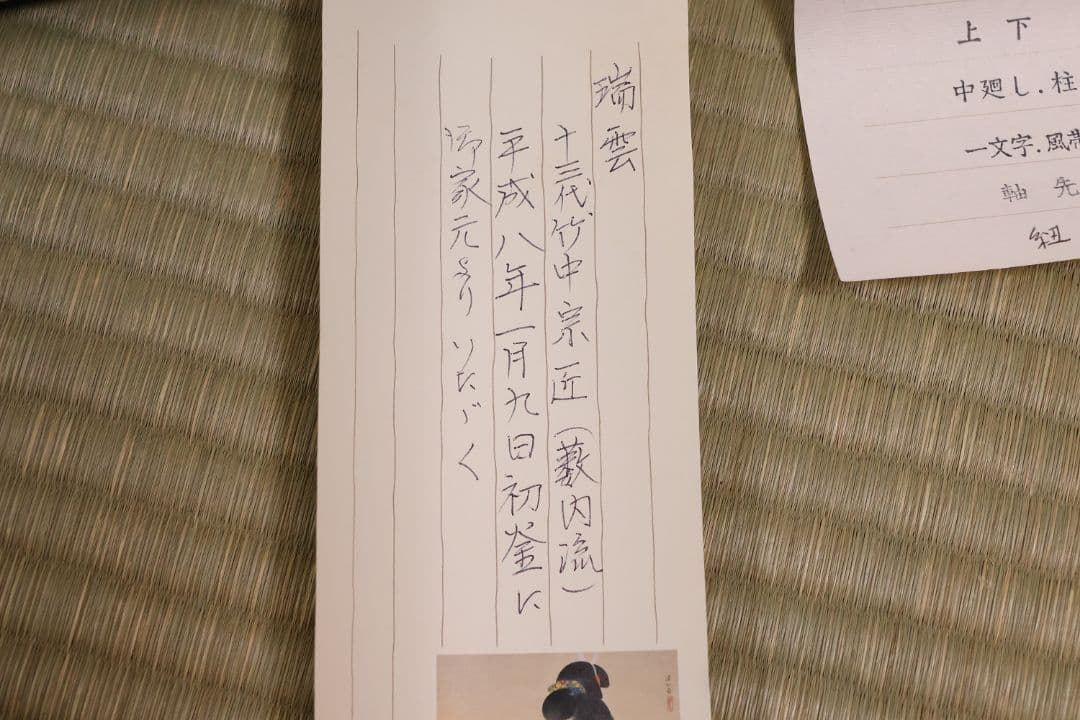 瑞雲
十三代竹中宗匠（薮内流）
平成八年一月九日初釜に
御家元よりいたゞく
上 下
中廻し.柱
一文字.風帯
軸 先
紐